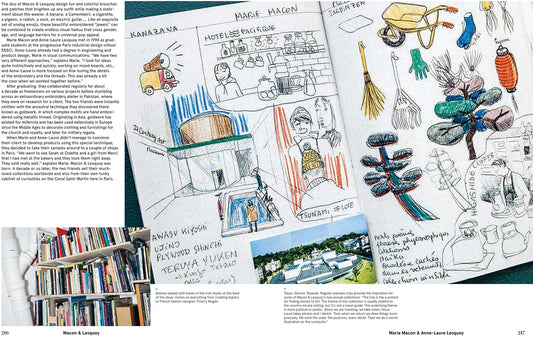 The duo of Macon & Lesquoy design fun and colorful brooches
and patches that brighten up any outfit while making a state-
ment about the wearer. A banana, a Camembert, a cigarette,
a pigeon, a radish, a sock, an electric guitar... Like an exquisite
set of analog emojis, these beautiful embroidered "jewels" can
be combined to create endless visual haikus that cross gender,
age, and language barriers for a universal pop appeal.
Marie Macon and Anne-Laure Lesquoy met in 1999 as grad-
uate students at the progressive Paris industrial design school
ENSCI. Anne-Laure already had a degree in engineering and
product design, Marie in visual communications. "We have two
very different approaches," explains Marie. "I look for ideas
quite instinctively and quickly, working on mood boards, etc.,
and Anne-Laure is more focused on fine-tuning the details
of the embroidery and the threads. This was already a bit
the case when we worked together before."
After graduating, they collaborated regularly for about
a decade as freelancers on various projects before stumbling
across an extraordinary embroidery atelier in Pakistan, where
they were on research for a client. The two friends were instantly
smitten with the ancestral technique they discovered there
known as goldwork, in which complex motifs are hand embroi-
dered using metallic thread. Originating in Asia, goldwork has
existed for millennia and has been used extensively in Europe
since the Middle Ages to decorate clothing and furnishings for
the church and royalty, and later for military regalia.
When Marie and Anne-Laure didn't manage to convince
their client to develop products using this special technique,
they decided to take their samples around to a couple of shops
in Paris. "We went to see Sarah at Colette and a girl from Merci
that I had met at the bakery and they took them right away.
They sold really well," explains Marie. Macon & Lesquoy was
born. A decade or so later, the two friends sell their much-
loved collections worldwide and also from their own funky
cabinet of curiosities on the Canal Saint-Martin here in Paris.
KANAZAWA
MARIE MACON
HOTEL PACIFIQUE
AWASU KIYOSHI
UJINO
PLYWOOD SHINCHI
TERUYA YUKEN
TSUNAMI DELUXE
Shelves loaded with books in the mini studio at the back
of the shop: riches on everything from creating topiary
to French fashion designer Thierry Mugler.
Tokyo, Detroit, Rwanda. Regular overseas trips provide the inspiration for
some of Macon & Lesquoy's two annual collections. "The trip is like a pretext
for finding stories to tell. The theme of the collection is usually related to
the country we are visiting, but it's not a travel guide. The underlying theme
is more political or poetic. When we are traveling, we take notes, Anne-
Laure takes photos and I sketch. Then when we return we draw things more
precisely. We work the scale, the postures, every detail. Then we do a vector
illustration on the computer."
286
Macon & Lesquoy
Marie Macon & Anne-Laure Lesquoy
287